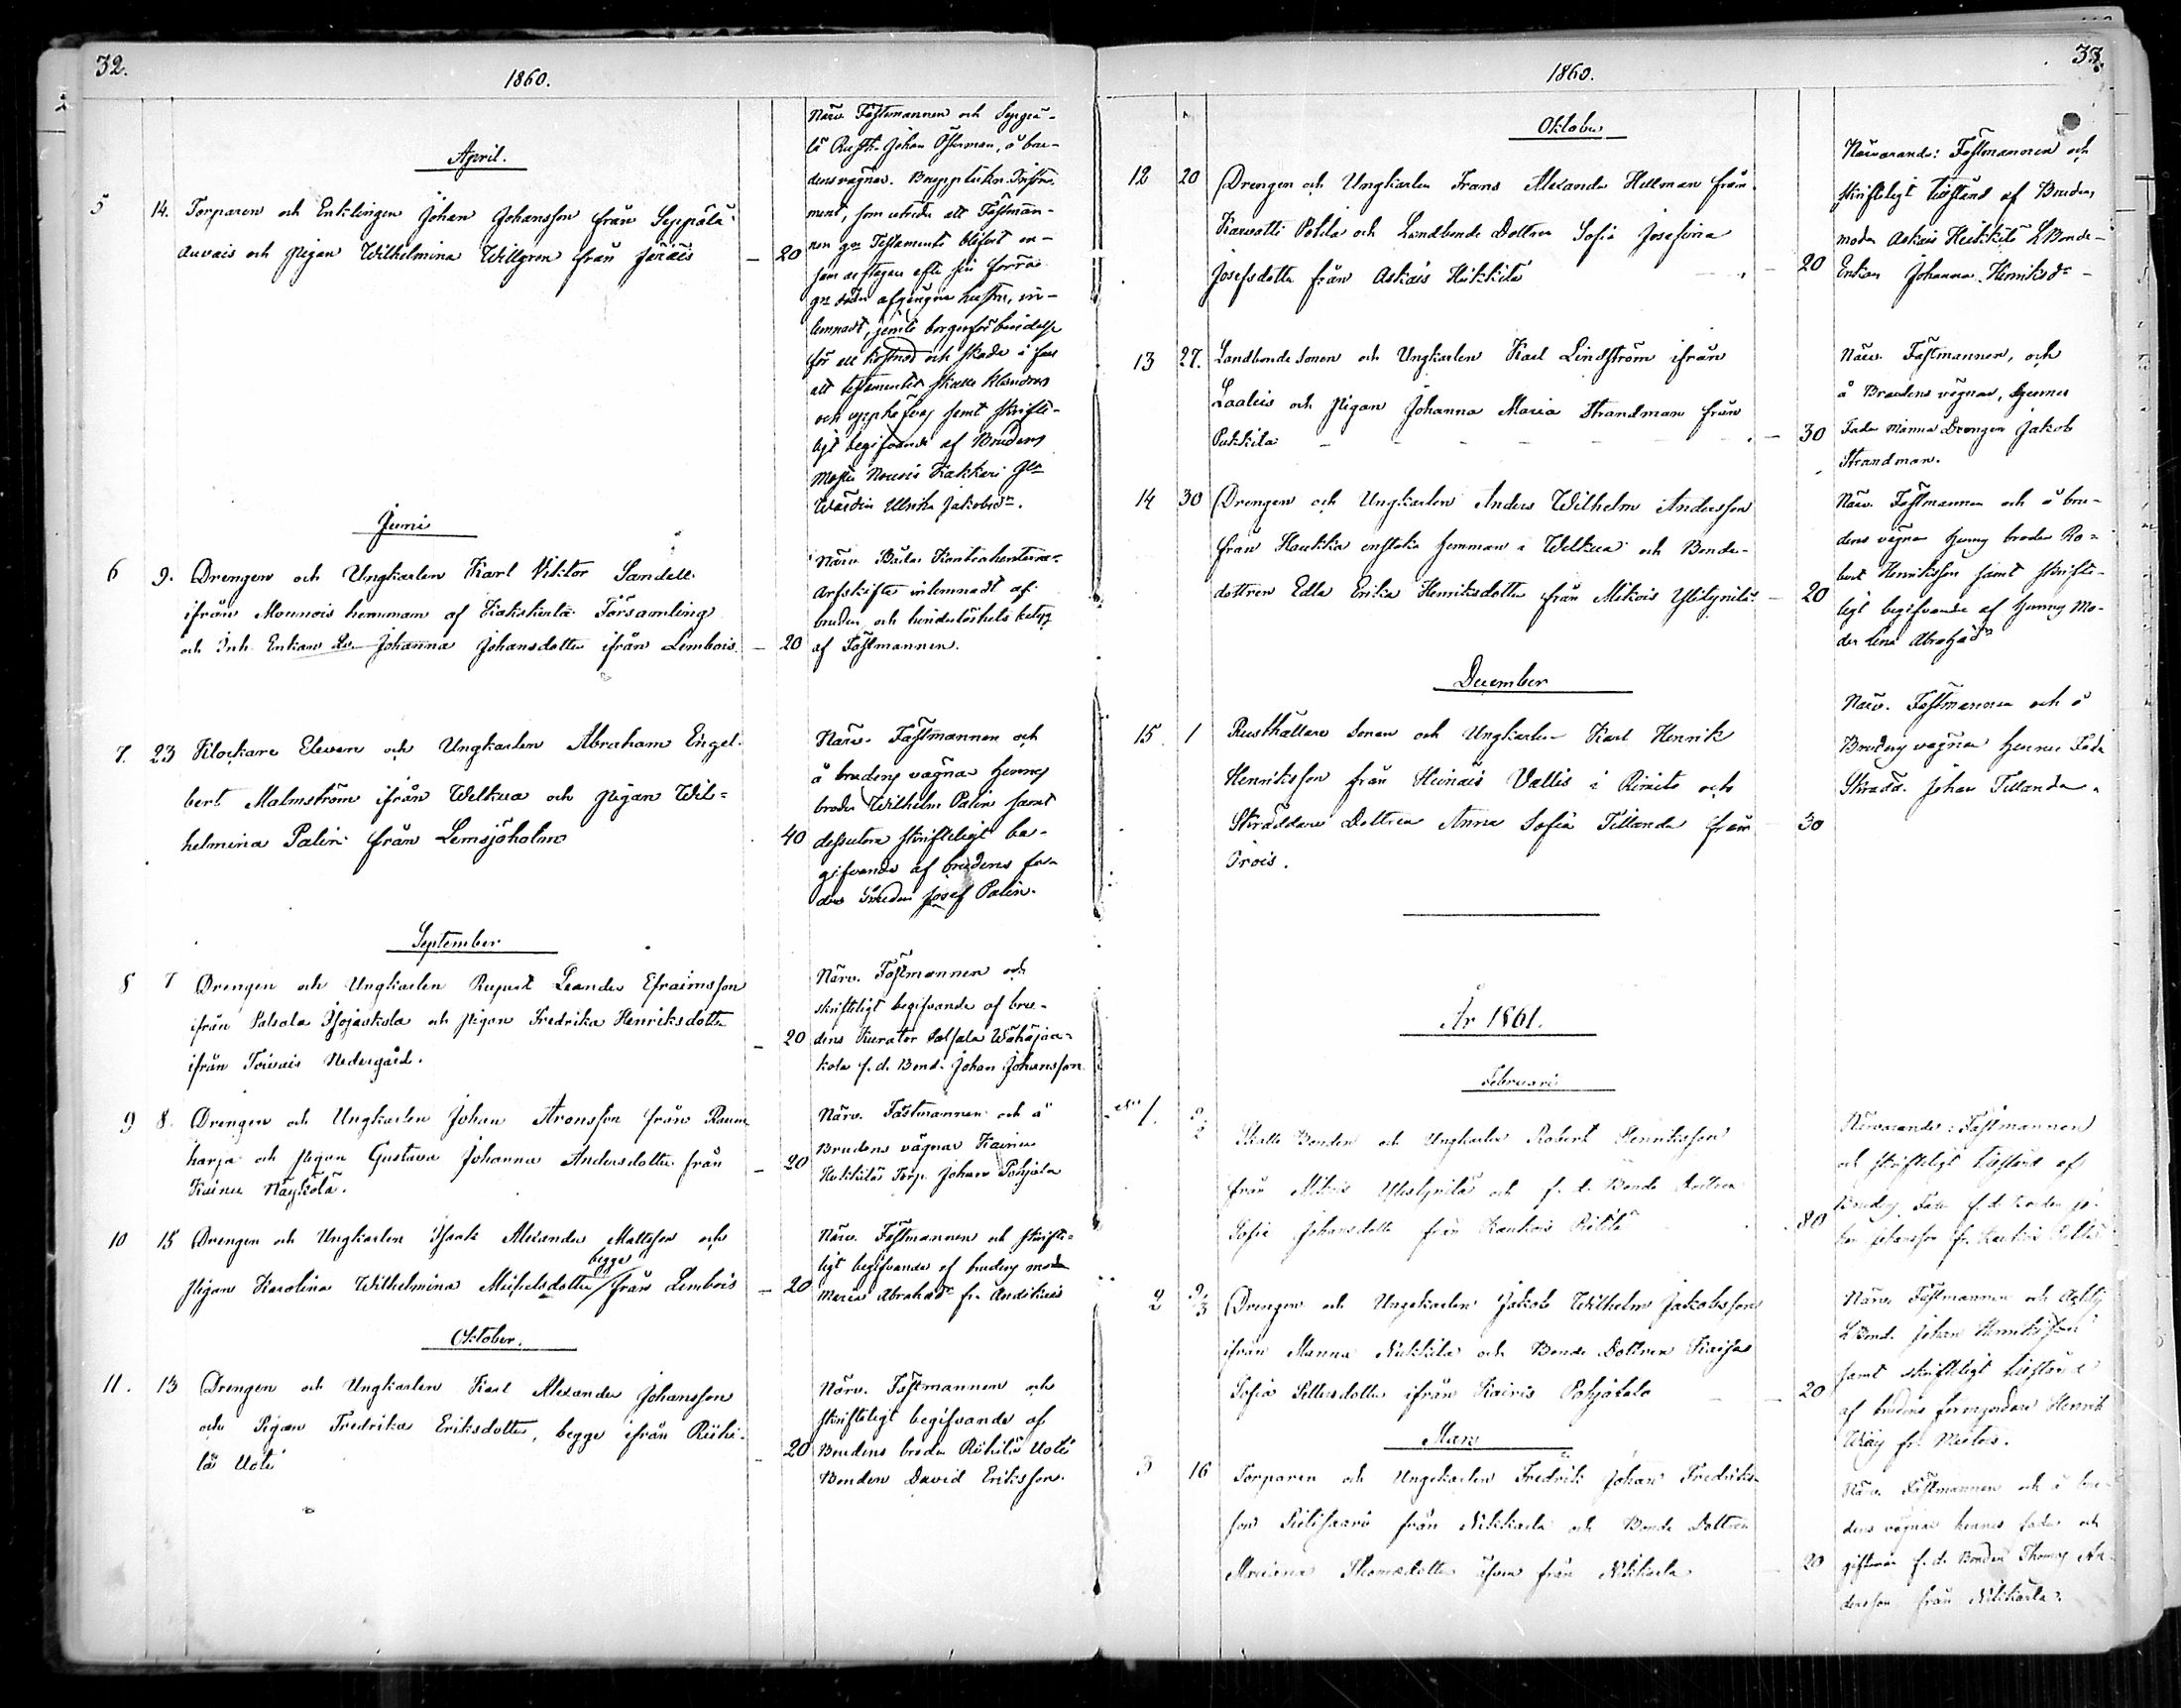 32.
1860.
April.
5 14. Torparen och Enklingen Johan Johansson från Seppälä
Auvais och Pigan Wilhelmina Willgren från Järäis — 20
Närv. Fästmannen och Seppä-
lä Rusth. Johan Österman, å bru-
dens vägnar.
ment, som utvisa att Fästman-
nen
sin förra
hustru, in-
lemnadt, jemte
för all kostnad och skada i fall
att testamentet skulle klandras
och upphäfvas samt skrift-
ligt begifvande af Brudens
Moster Nousis Kakkari
Ulrika Jakobsdr.
Juni
6 9. Drengen och Ungkarlen Karl Viktor Sandell
ifrån Mounois hemman af Kakskerta Församling
och Inh. Enkan Johanna Johansdotter ifrån Lembois. — 20
Närv. Båda Kontrahenterne.
Arfskifte inlemnadt af
bruden och hinderlöshets betyg
af Fästmannen.
7. 23 Klockare Eleven och Ungkarlen Abraham Engel-
bert Malmström ifrån Welkua och Pigan Wil-
helmina Palin från Lemsjöholm 40
Närv. Fästmannen och
å brudens vägnar hennes
broder Wilhelm Palin samt
dessutom skriftligt be-
gifvande af brudens fa-
der Josef Palin.
September
8 7 Drengen och Ungkarlen August Leander Efraimsson
ifrån Salsala Isojaakola och Pigan Fredrika Henriksdotter
ifrån Toivais Nedergård. — 20
Närv. Fästmannen och
skriftligt begifvande af bru-
dens Kurator Salsala Wähäjaa-
kola f. d. Bond. Johan Johansson
9 8. Drengen och Ungkarlen Johan Aronsson från Raum
harja och Pigan Gustava Johanna Andersdotter från
Kainu Näykölä. — 20
Närv. Fästmannen och å
Brudens vägnar Kainu
Heikkilä Torp. Johan Pohjala
10 15 Drengen och Ungkarlen Isaak Alexander Mattsson och
Pigan Karolina Wilhelmina Michelsdotter begge från Lembois — 20
Närv. Fästmannen och skrift-
ligt begifvande af brudens moder
Maria Abrahadr. fr. Andikais
Oktober.
11. 13 Drengen och Ungkarlen Karl Alexander Johansson
och Pigan Fredrika Eriksdotter, begge ifrån Riihi-
lä Uoti — 20
Närv. Fästmannen och
skriftligt begifvande af
Brudens broder Riihilä Uoti
Bonden David Eriksson.
33.
1860.
Oktober
12 20 Drengen och Ungkarlen Frans Alexander Hellman från
Karvatti Pokla och Landbonde Dottren Sofia Josefina
Josefsdotter från Askais Heikkilä — 20
Närvarande: Fästmannen och
skriftligt tillstånd af Brudens
moder Askais Heikkilä LBonde-
Enkan Johanna Henriksdr.
13 27. Landbonde Sonen och Ungkarlen Karl Lindström ifrån
Laaleis och Pigan Johanna Maria Strandman från
Pukkila — 30
Närv. Fästmannen, och
å Brudens vägnar, hennes
Fader Manna Drengen Jakob
Strandman.
14 30 Drengen och Ungkarlen Anders Wilhelm Andersson
från Haukka enstaka hemman i Welkua och Bonde-
dottren Edla Erika Henriksdotter från Mikois Ylitynilä — 20
Närv. Fästmannen och å bru-
dens vägnar hennes broder Ro-
bert Henriksson samt skrift-
ligt begifvande af hennes Mo-
der Lena Abrahadr
December
15. 1 Rusthållare Sonen och Ungkarlen Karl Henrik
Henriksson från Heinäis Vallis i Rimito och
Skräddare Dottren Anna Sofia Tillander från 30
Orois.
Närv. Fästmannen och å
Brudens vägnar hennes Fader
Skradd. Johan Tillander.
År 1861.
Februari
No 1. 9/2 Bonden och Ungkarlen Robert Henriksson
från Mikois Ylitynilä och f. d. Bonde Dottren
Sofia Johansdotter från Kankois 80
Närvarande: Fästmannen
och skriftligt tillstånd af
Brudens Fader f. d. Bonden Jo-
han Johansson fr.
2 Drengen och Ungekarlen Jakob Wilhelm Jakobsson
ifrån Manna Nikkila och Bonde Dottren Kaisa
Sofia ifrån Kairis Pohjatalo — 20
Närv. Fästmannen och
LBond. Johan Henriksson
samt skriftligt tillstånd
af brudens förmyndare Henrik
Mars
3 16 Torparen och Ungekarlen Fredrik Johan Fredriks-
son från Nikkarla och Bonde Dottren
Mariana Thomasdotter äfven från Nikkarla — 20
Närv. Fästmannen och å bru-
dens vägnar hennes fader och
giftoman f. d. Bonden Thomas An-
dersson från Nikkarla.